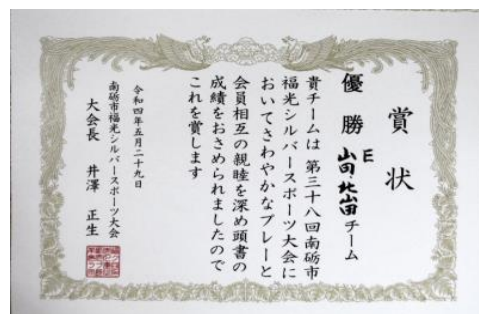 賞状
優勝 山田・北山田Eチーム
貴チームは 第三十八回南砺市
福光シルバースポーツ大会に
おいてさわやかなプレーと
会員相互の親睦を深め頭書の
成績をおさめられましたので
これを賞します
令和四年五月二十九日
南砺市福光シルバースポーツ大会
大会長 井澤 正生